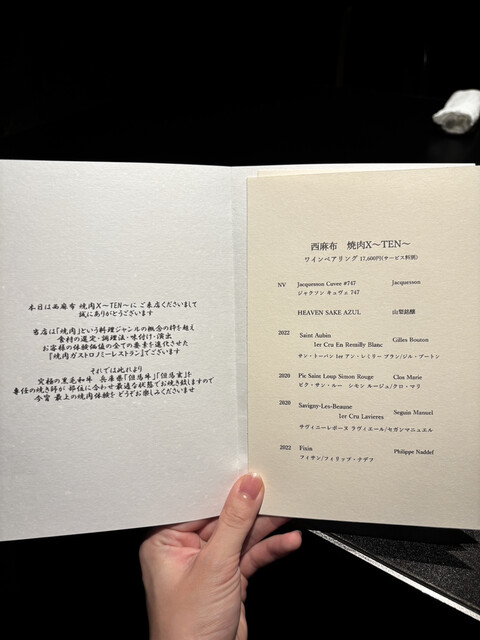 本日は西麻布 焼肉X〜TEN〜に ご来店くださいまして
誠にありがとうございます
当店は「焼肉」という料理ジャンルの概念の枠を超え
食材の選定・調理法・味付け・演出
お客様の体験価値の全ての要素を進化させた
『焼肉ガストロノミーレストラン』でございます
それでは此れより
究極の黒毛和牛 兵庫県「但馬牛」「但馬玄」を
専任の焼き師が 部位に合わせ最適な状態でお焼き致しますので
今宵 最上の焼肉体験を どうぞお楽しみくださいませ
西麻布 焼肉X〜TEN〜
ワインペアリング 17,600円(サービス料別)
NV Jacquesson Cuvee #747 Jacquesson
ジャクソン キュヴェ 747
HEAVEN SAKE AZUL 山梨銘醸
2022 Saint Aubin
1er Cru En Remilly Blanc Gilles Bouton
サン・トーバン 1er アン・レミリー ブラン/ジル・ブートン
2020 Pic Saint Loup Simon Rouge Clos Marie
ピク・サン・ルー シモン ルージュ/クロ・マリ
2020 Savigny-Les-Beaune
1er Cru Lavieres Seguin Manuel
サヴィニーレボーヌ ラヴィエール/セガンマニュエル
2022 Fixin Philippe Naddef
フィサン/フィリップ・ナデフ